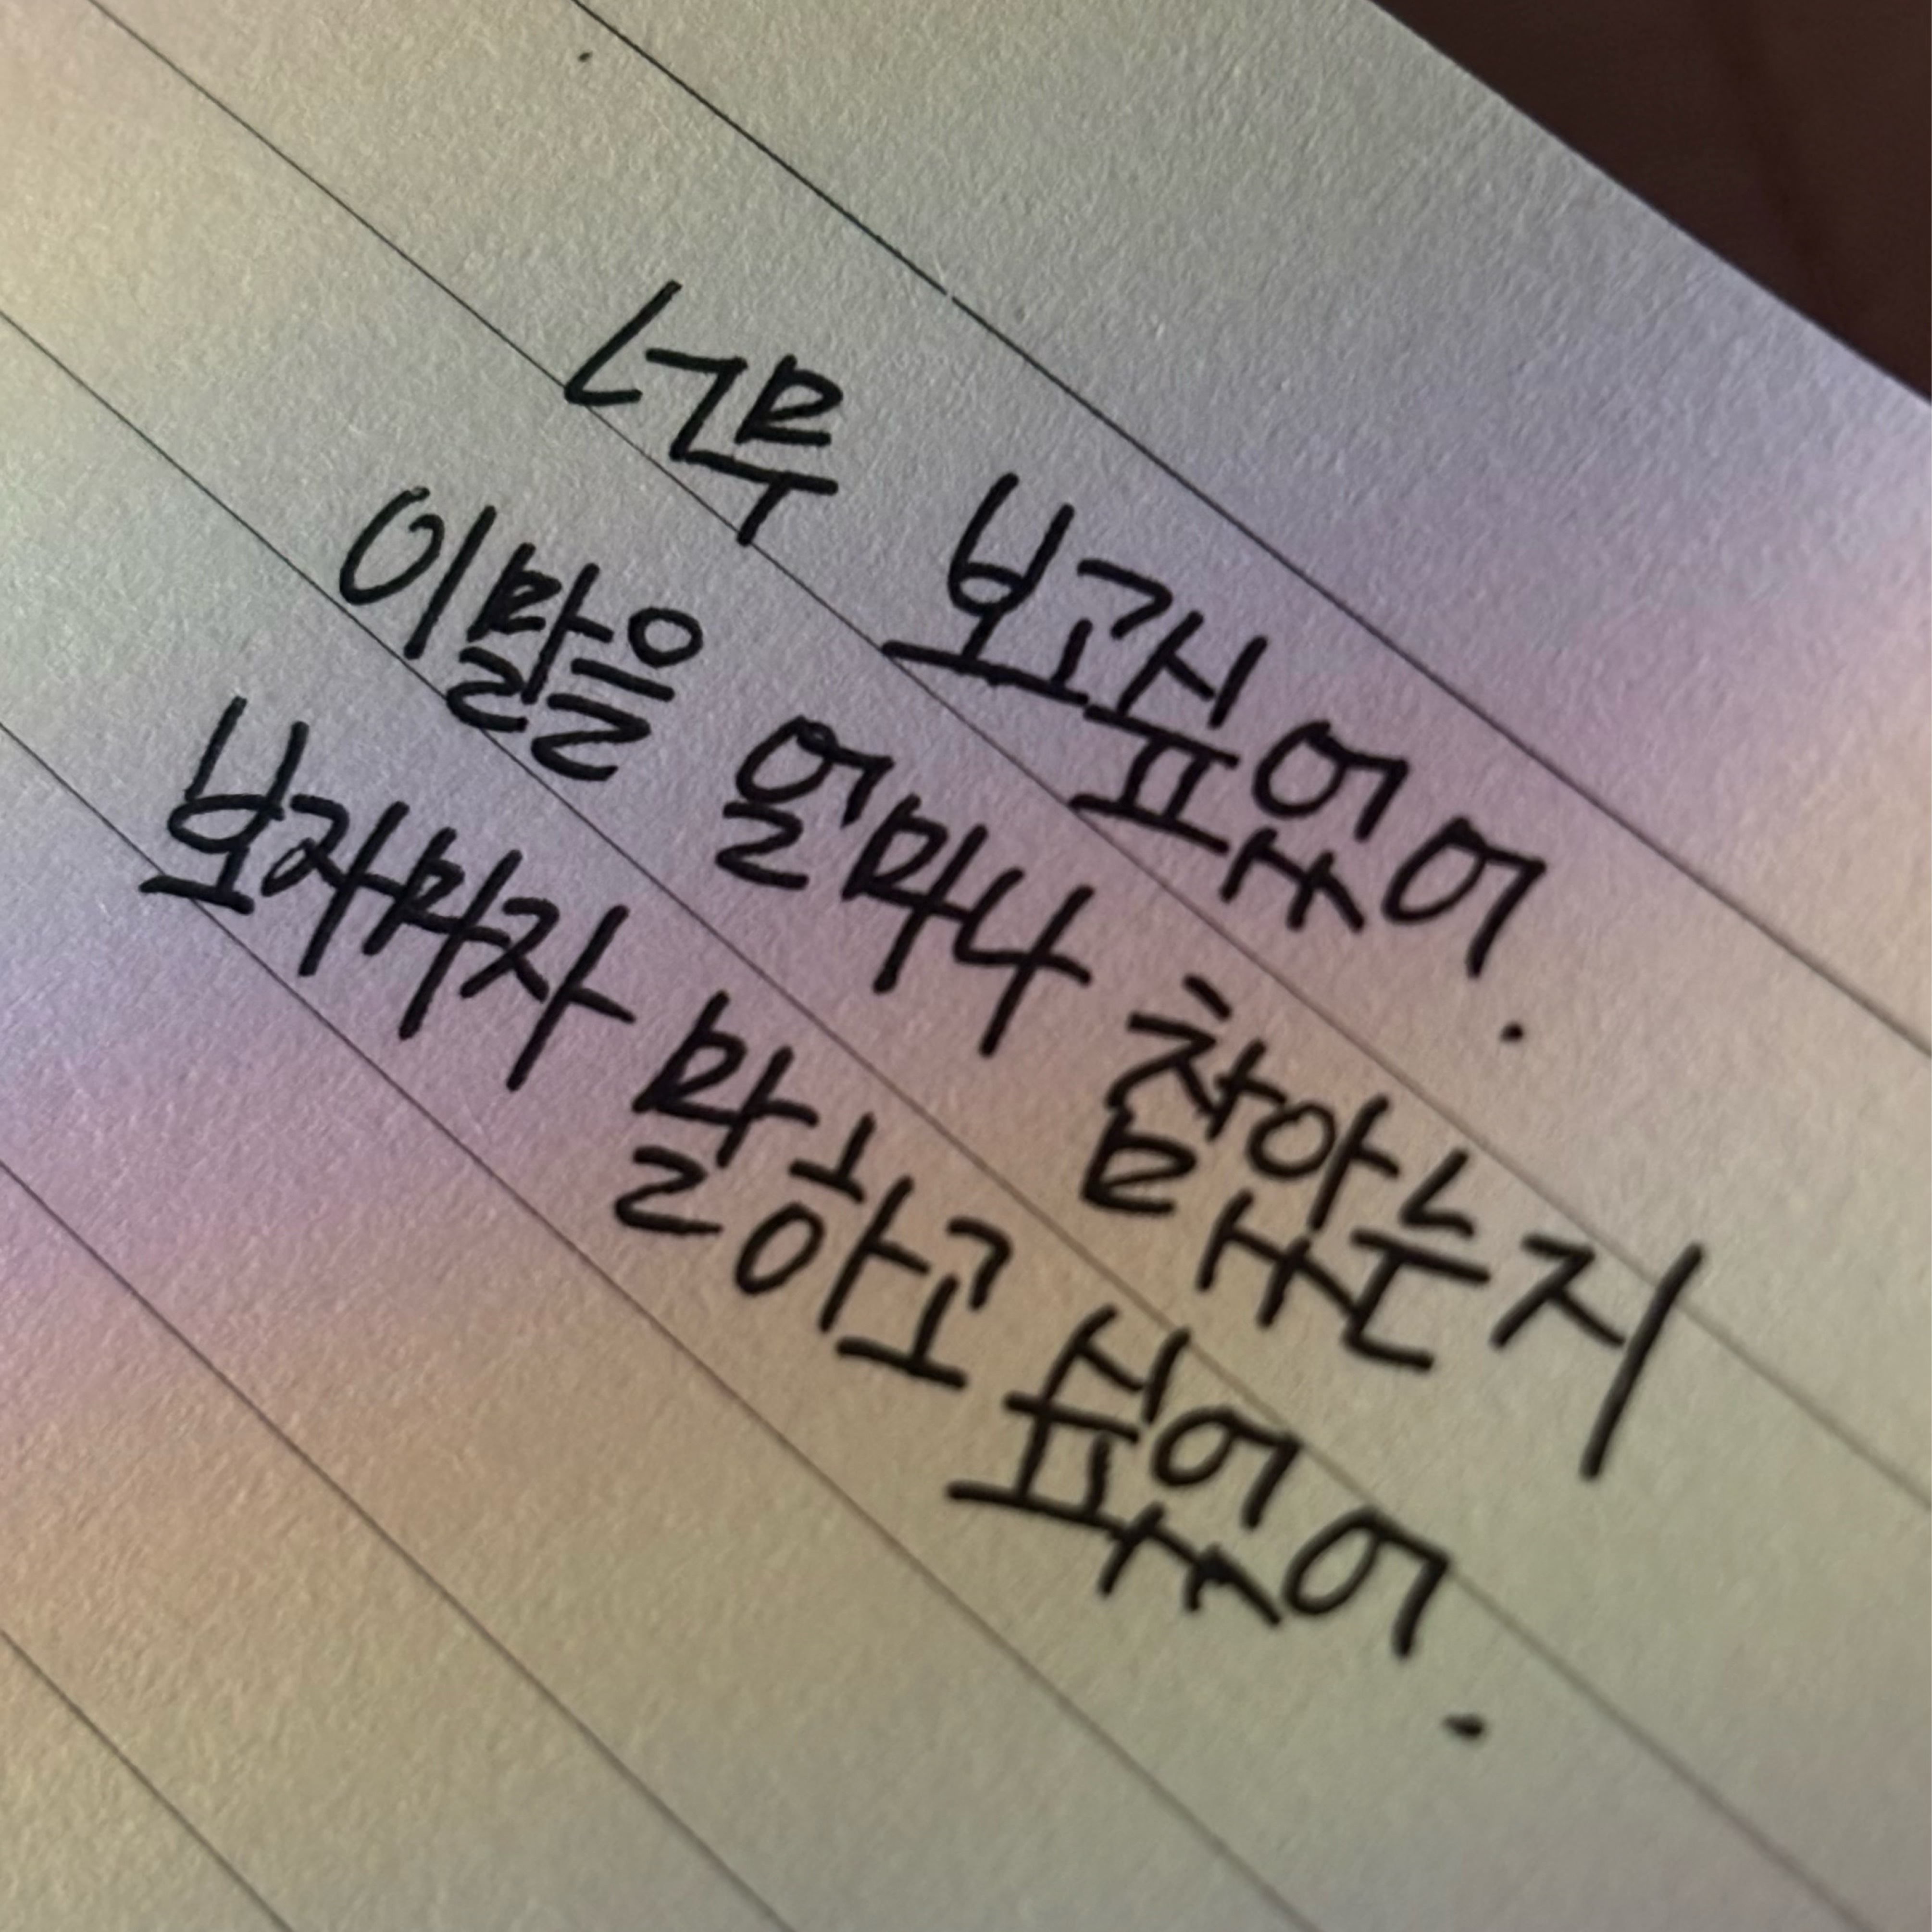 너무 보고싶었어.
이말을 얼마나 참았는지
보자마자 말하고 싶었어.